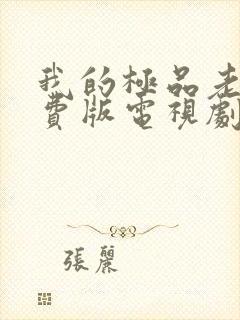 我的極品老
費版電視劇
張麗